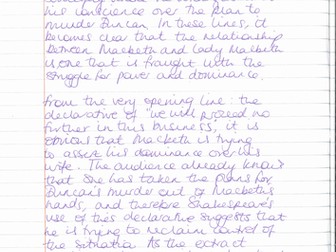 his conscience over the plan to
murder Duncan. In these lines, it
becomes clear that the relationship
between Macbeth and Lady Macbeth
is one that is fraught with the
struggle for power and dominance.
From the very opening line: the
declarative of 'we will proceed no
further in this business', it is
obvious that Macbeth is trying
to assert his dominance over his
wife. The audience already know
that she has taken the plans for
Duncan's murder out of Macbeth's
hands, and therefore Shakespeare's
use of this declarative suggests that
he is trying to reclaim control of
the situation. As the extract